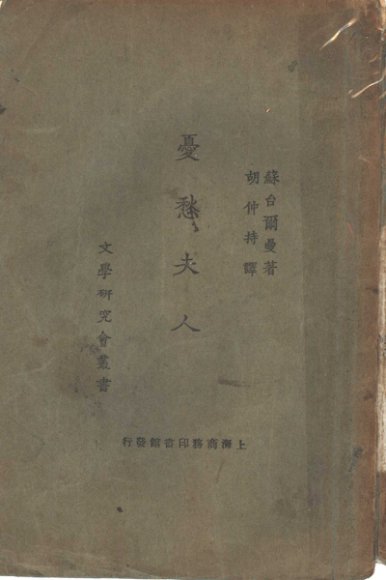 蘇台爾曼著
胡仲持譯
憂愁夫人
文學研究會叢書
上海商務印書館發行